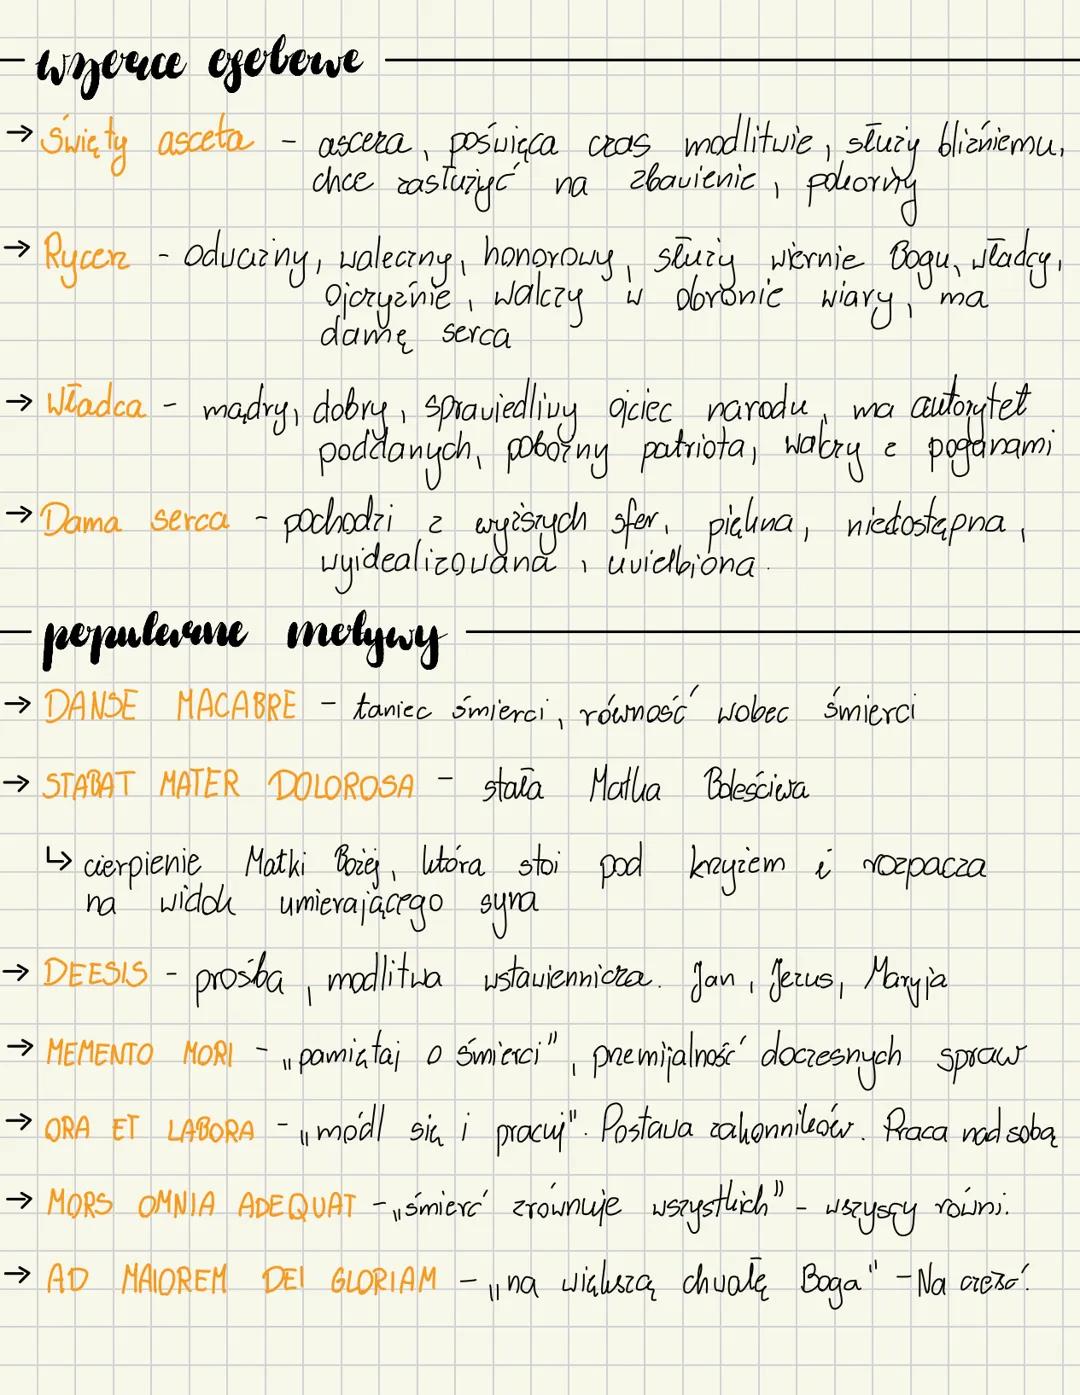 wzorce osobowe
→ Święty asceta - asceza, poświęca czas modlitwie, służy bliźniemu,
chce zasłużyć na zbawienie, pokorny
→ Rycerz - odważny, waleczny, honorowy, służy wiernie Bogu, władcy,
Ojczyźnie, walczy w obronie wiary, ma
damę serca
→ Władca - mądry, dobry, sprawiedliwy ojciec narodu, ma autorytet
poddanych, pobożny patriota, walczy z poganami
→ Dama serca - pochodzi z wyższych sfer, piękna, niedostępna,
wyidealizowana, uwielbiona.
popularne motywy
→ DANSE MACABRE - taniec śmierci, równość wobec śmierci
→ STABAT MATER DOLOROSA - stała Matka Boleściwa
↳ cierpienie Matki Bożej, która stoi pod krzyżem i rozpacza
na widok umierającego syna
→ DEESIS - prośba, modlitwa wstawiennicza. Jan, Jezus, Maryja
→ MEMENTO MORI - „pamiętaj o śmierci", przemijalność doczesnych spraw
→ ORA ET LABORA - „módl się i pracuj". Postawa zakonników. Praca nad sobą
→ MORS OMNIA ADEQUAT - „śmierć zrównuje wszystkich" - wszyscy równi.
→ AD MAIOREM DEI GLORIAM - „na większą chwałę Boga" - Na cześć.